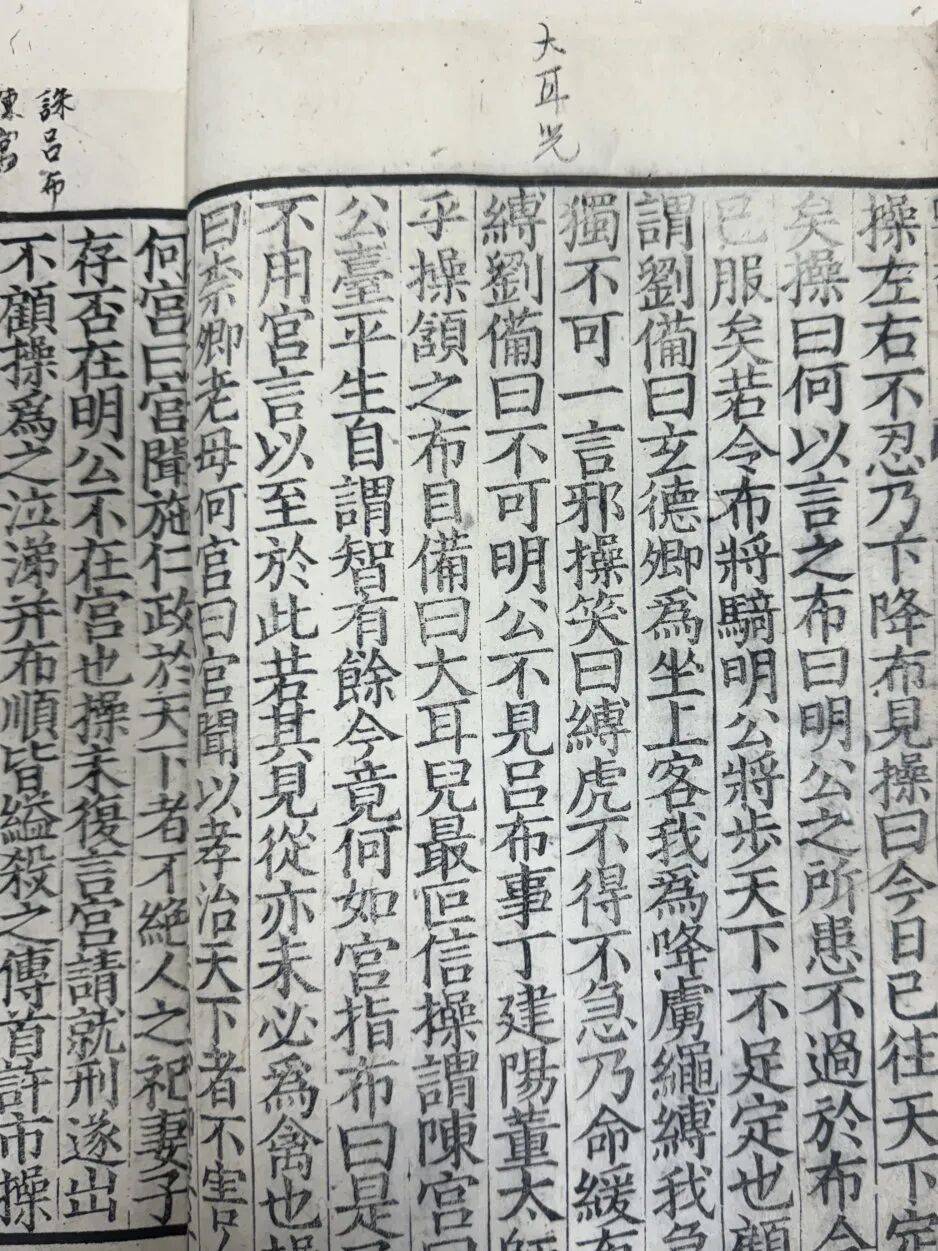 大耳兒
操左右不忍乃下降布見操曰今日已往天下定
矣操曰何以言之布曰明公之所患不過於布今
已服矣若令布將騎明公將步天下不足定也顧
謂劉備曰玄德卿爲坐上客我爲降虜繩縛我急
獨不可一言邪操笑曰縛虎不得不急乃命緩布
縛劉備曰不可明公不見呂布事丁建陽董太師
乎操頷之布目備曰大耳兒最叵信操謂陳宮曰
公臺平生自謂智有餘今竟何如宮指布曰是
不用宮言以至於此若其見從亦未必爲禽也
曰柰卿老母何宮曰宮聞以孝治天下者不害
誅呂布
陳宮
何宮曰宮聞施仁政於天下者不絕人之祀妻子
存否在明公不在宮也操未復言宮請就刑遂出
不顧操爲之泣涕并布順皆縊殺之傳首許市操